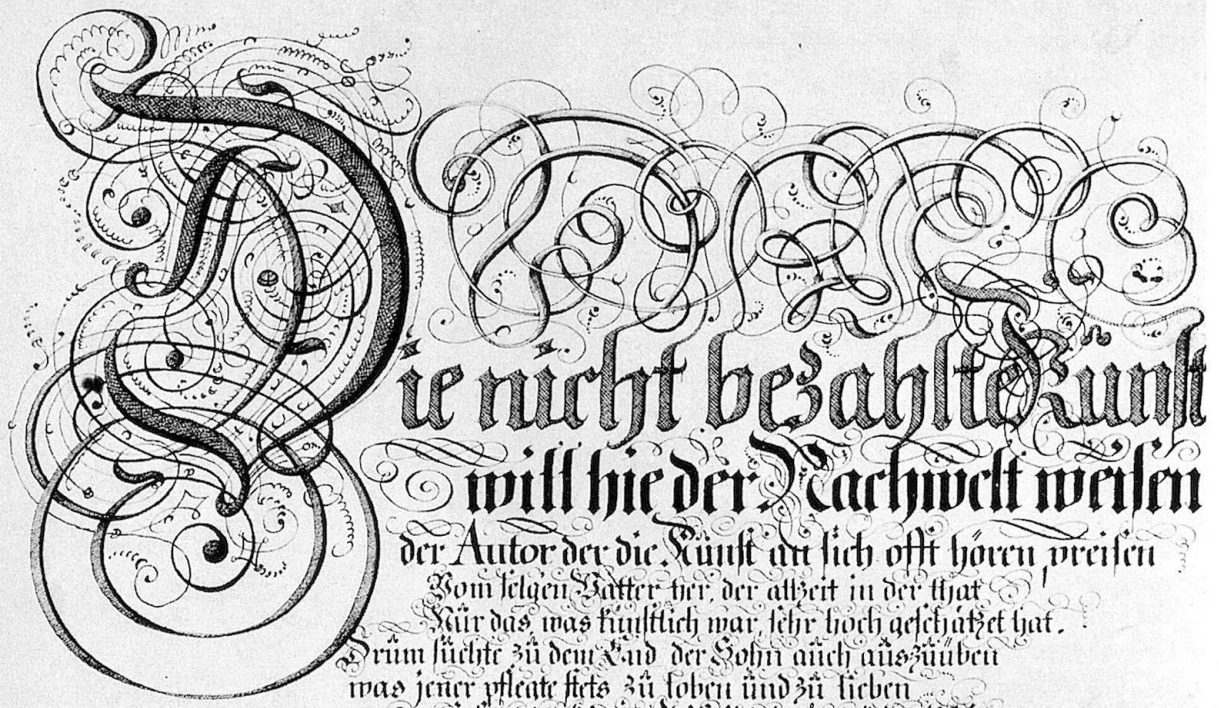 Die nicht bezahlte Kunst
will hie der Nachwelt weisen
der Autor der die Kunst an sich offt hören preisen
Vom selgen Vatter her, der allzeit in der that
Nur das, was kunstlich war, sehr hoch geschätzet hat.
Drum suchte zu dem End der Sohn auch auszuüben
was jener pflegte stets zu loben und zu lieben